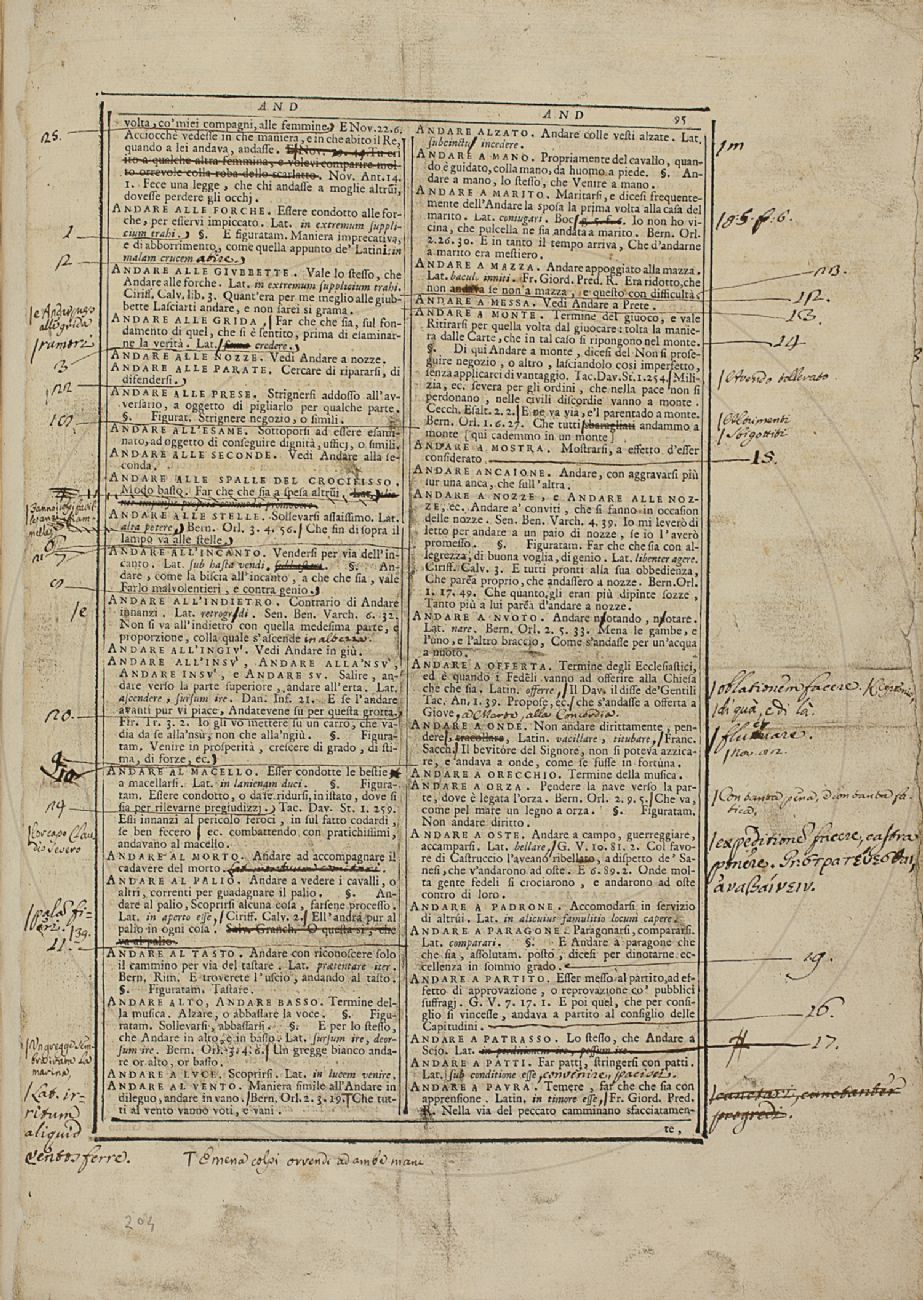 AND
AND
95
volta, co'miei compagni, alle femmine, E Nov. 22. 6.
Acciocchè vedesse in che maniera, e in che abito il Re,
quando a lei andava, andasse.
Nov. Ant. 14.
1. Fece una legge, che chi andasse a moglie altrúi,
dovesse perdere gli occhj.
ANDARE ALLE FORCHE. Essere condotto alle for-
che, per esservi impiccato. Lat. in extremum suppli-
cium trahi. §. E figuratam. Maniera imprecativa,
e di abborrimento, come quella appunto de' Latini: in
malam crucem abire.
ANDARE ALLE GIUBETTE. Vale lo stesso, che
Andare alle forche. Lat. in extremum supplicium trahi.
Ciriff. Calv. lib. 3. Quant'era per me meglio alle giub-
bette Lasciarti andare, e non farei sì grama.
ANDARE ALLE GRIDA, Far che che sia, sul fon-
damento di quel, che si è sentito, prima di esaminar-
ne la verità. Lat. fame credere.
ANDARE ALLE NOZZE. Vedi Andare a nozze.
ANDARE ALLE PARATE. Cercare di ripararsi, di
difendersi.
ANDARE ALLE PRESE. Strignersi addosso all'av-
versario, a oggetto di pigliarlo per qualche parte.
§. Figurat. Strignere negozio, o simili.
ANDARE ALL'ESAME. Sottoporsi ad essere esami-
nato, ad oggetto di conseguire dignità, uffici, o simili.
ANDARE ALLE SECONDE. Vedi Andare alla se-
conda.
ANDARE ALLE SPALLE DEL CROCIFISSO.
Modo basso. Far che che sia a spesa altrúi
ANDARE ALLE STELLE. Sollevarsi assaissimo. Lat.
alta petere, Bern. Orl. 3. 4. 56. Che fin di sopra il
lampo va alle stelle.
ANDARE ALL'INCANTO. Vendersi per via dell'in-
canto. Lat. sub hasta vendi. §. An-
dare, come la biscia all'incanto, a che che sia, vale
Farlo malvolentieri, e contra genio.
ANDARE ALL'INDIETRO. Contrario di Andare
innanzi. Lat. retrogradi. Sen. Ben. Varch. 6. 32.
Non si va all'indietro con quella medesima parte, e
proporzione, colla quale s'ascende in altezza.
ANDARE ALL'INGIU'. Vedi Andare in giù.
ANDARE ALL'INSU', ANDARE ALLA'NSU',
ANDARE INSU', e ANDARE SU. Salire, an-
dare verso la parte superiore, andare all'erta. Lat.
ascendere, sursum ire. Dan. Inf. 21. E se l'andare
avanti pur vi piace, Andatevene su per questa grotta.
Fir. Tr. 3. 2. Io gli vo mettere su un carro, che va-
dia da se alla'nsù, non che alla'ngiù. §. Figura-
tam. Venire in prosperità, crescere di grado, di sti-
ma, di forze, ec.
ANDARE AL MACELLO. Esser condotte le bestie
a macellarsi. Lat. in lanienam duci. §. Figura-
tam. Essere condotto, o darse, ridursi, in istato, dove si
sia per rilevarne pregiudizzj. Tac. Dav. St. 1. 259.
Essi innanzi al pericolo feroci, in sul fatto codardi,
se ben fecero ec. combattendo con pratichissimi,
andavano al macello.
ANDARE AL MORTO. Andare ad accompagnare il
cadavere del morto.
ANDARE AL PALIO. Andare a vedere i cavalli, o
altri, correnti per guadagnare il palio. §. An-
dare al palio, Scoprirsi alcuna cosa, farsene processo.
Lat. in aperto esse, Ciriff. Calv. 2. Ell'andrà pur al
palio in ogni cosa. Salv. Granch. O questa sì, che
va al palio.
ANDARE AL TASTO. Andare con riconoscere solo
il cammino per via del tastare. Lat. praetentare iter.
Bern. Rim. E troverete l'uscio, andando al tasto.
§. Figuratam. Tastare.
ANDARE ALTO, ANDARE BASSO. Termine del-
la musica. Alzare, o abbassare la voce. §. Figu-
ratam. Sollevarsi, abbassarsi. §. E per lo stesso,
che Andare in alto, e in basso. Lat. sursum ire, deor-
sum ire. Bern. Orl. 3. 4. 6. Un gregge bianco anda-
re or alto, or basso.
ANDARE A LUCE. Scoprirsi. Lat. in lucem venire.
ANDARE AL VENTO. Maniera simile all'Andare in
dileguo, andare in vano. Bern. Orl. 2. 3. 19. Che tut-
ti al vento vanno voti, e vani.
ANDARE ALZATO. Andare colle vesti alzate. Lat.
subcinctum incedere.
ANDARE A MANO. Propriamente del cavallo, quan-
do è guidato, colla mano, da huomo a piede. §. An-
dare a mano, lo stesso, che Venire a mano.
ANDARE A MARITO. Maritarsi, e dicesi frequente-
mente dell'Andare la sposa la prima volta alla casa del
marito. Lat. coniugari. Boc. Io non ho vi-
cina, che pulcella ne sia andata a marito. Bern. Orl.
2. 26. 30. E in tanto il tempo arriva, Che d'andarne
a marito era mestiero.
ANDARE A MAZZA. Andare appoggiato alla mazza.
Lat. bacul. inniti. Fr. Giord. Pred. R. Era ridotto, che
non andava se non'a mazza, e questo con difficultà.
ANDARE A MESSA. Vedi Andare a Prete.
ANDARE A MONTE. Termine del giuoco, e vale
Ritirarsi per quella volta dal giuocare: tolta la manie-
ra dalle Carte, che in tal caso si ripongono nel monte.
§. Di qui Andare a monte, dicesi del Non si prose-
guire negozio, o altro, lasciandolo così imperfetto,
senza applicarci di vantaggio. Tac. Dav. St. 1. 254. Mili-
zia, ec. severa per gli ordini, che nella pace non si
perdonano, nelle civili discordie vanno a monte.
Cecch. Esalt. 2. 2. E ne va via, e'l parentado a monte.
Bern. Orl. 1. 6. 27. Che tutti sbaragliati andammo a
monte [qui cademmo in un monte]
ANDARE A MOSTRA. Mostrarsi, a effetto d'esser
considerato
ANDARE ANCAIONE. Andare, con aggravarsi più
sur una anca, che sull'altra.
ANDARE A NOZZE, e ANDARE ALLE NOZ-
ZE, ec. Andare a' conviti, che si fanno in occasion
delle nozze. Sen. Ben. Varch. 4. 39. Io mi leverò di
letto per andare a un paio di nozze, se io l'averò
promesso. §. Figuratam. Far che che sia con al-
legrezza, di buona voglia, di genio. Lat. libenter agere.
Ciriff. Calv. 3. E tutti pronti alla sua obbedienza,
Che parea proprio, che andassero a nozze. Bern. Orl.
1. 17. 49. Che quanto gli eran più dipinte sozze,
Tanto più a lui parea d'andare a nozze.
ANDARE A NUOTO. Andare nuotando, nuotare.
Lat. nare. Bern. Orl. 2. 5. 33. Mena le gambe, e
l'uno, e l'altro braccio, Come s'andasse per un'acqua
a nuoto.
ANDARE A OFFERTA. Termine degli Ecclesiastici,
ed è quando i Fedèli vanno ad offerire alla Chiesa
che che sia. Latin. offerre, Il Dav. il disse de'Gentili
Tac. An. 1. 39. Propose, ec. che s'andasse a offerta a
Giove, a Marte, alla Concordia.
ANDARE A ONDE. Non andare dirittamente, pen-
dere, tracollare, Latin. vacillare, titubare, Franc.
Sacch. Il bevitore del Signore, non si poteva azzica-
re, e andava a onde, come se fusse in fortuna.
ANDARE A ORECCHIO. Termine della musica.
ANDARE A ORZA. Pendere la nave verso la par-
te, dove è legata l'orza. Bern. Orl. 2. 9. 5. Che va,
come pel mare un legno a orza. §. Figuratam.
Non andare diritto.
ANDARE A OSTE. Andare a campo, guerreggiare,
accamparsi. Lat. bellare, G. V. 10. 81. 2. Col favo-
re di Castruccio l'aveano ribellato, a dispetto de' Sa-
nesi, che v'andarono ad oste. E 6. 89. 2. Onde mol-
ta gente fedeli si crociarono, e andarono ad oste
contro di loro.
ANDARE A PADRONE. Accomodarsi in servizio
di altrúi. Lat. in alicuius famulitio locum capere.
ANDARE A PARAGONE. Paragonarsi, compararsi.
Lat. comparari. §. E Andare a paragone che
che sia, assolutam. posto, dicesi per dinotarne ec-
cellenza in sommo grado.
ANDARE A PARTITO. Esser messo al partito, ad ef-
fetto di approvazione, o reprovazione co' pubblici
suffragi. G. V. 7. 17. 1. E poi quel, che per consi-
glio si vincesse, andava a partito al consiglio delle
Capitudini.
ANDARE A PATRASSO. Lo stesso, che Andare a
Scio. Lat.
ANDARE A PATTI. Far patti, stringersi con patti.
Lat. sub conditione esse, convenire, pacisci.
ANDARE A PAURA. Temere, far che che sia con
apprensione. Latin. in timore esse, Fr. Giord. Pred.
R. Nella via del peccato camminano sfacciatamen-
te,
25.
1
12
rumori
3
9
20.
14
21.
aliquid
ventos ferre.
T E mena colpi orrendi ad ambe mani
18. 5. f. 6.
13.
12.
13.
14
15.
oblationem facere.
di qua, e di là
fluctuare.
nov. 112.
expeditionem facere, castra
ponere.
19.
16.
17.
progredi.
204